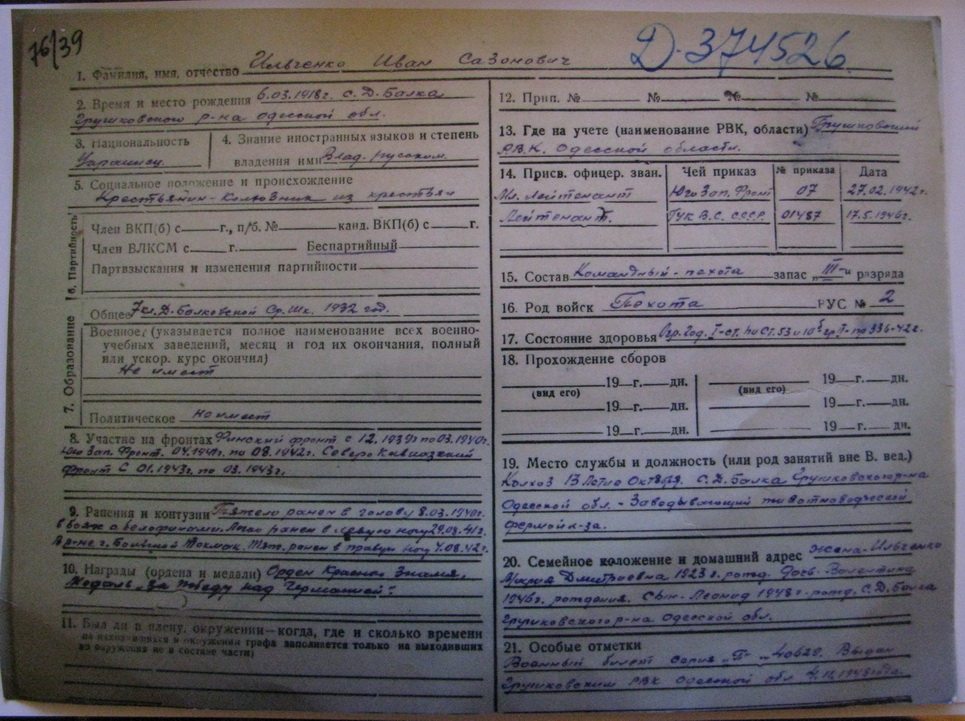 76/39
Д-374526
1. Фамилия, имя, отчество Ильченко Иван Сазонович
2. Время и место рождения 6.03.1918г. с. Д-Балка
Грушковского р-на одесской обл.
3. Национальность
Украинец
4. Знание иностранных языков и степень
владения ими Влад. русским.
5. Социальное положение и происхождение
Крестьянин-колхозник из крестьян
6. Партийность
Член ВКП(б) с г., п/б. № канд. ВКП(б) с г.
Член ВЛКСМ с г. Беспартийный
Партвзыскания и изменения партийности
7. Образование
Общее 7 кл. Д. Балковской Ср. Шк. 1932 год.
Военное (указывается полное наименование всех военно-
учебных заведений, месяц и год их окончания, полный
или ускор. курс окончил)
Не имеет
Политическое не имеет
8. Участие на фронтах Финский фронт с 12.1939г по 03.1940г.
Юго Зап. Фронт. по 08.1942г. Северо Кавказский
фронт С 01.1943г. по 03.1943г.
9. Ранения и контузии Тяжело ранен в голову 8.03.1940г.
в боях с белофинами. Легко ранен в левую ногу
Большой Токмак. Тяж. ранен в правую ногу 4.08.42г.
10. Награды (ордена и медали) Орден Красное Знамя.
Медаль „За победу над Германией".
11. Был ли в плену, окружении—когда, где и сколько времени
(в окружении графа заполняется только на выходивших
из окружения не в составе части)
12. Прип. № № № №
13. Где на учете (наименование РВК, области) Грушковский
РВК. Одесской области.
14. Присв. офицер. зван. Чей приказ № приказа Дата
Мл. Лейтенант Юго Зап. Фронт 07 27.02.1942г.
Лейтенант. ГУК В.С. СССР. 01487 17.5.1946г.
15. Состав Командный-пехота запас „III"-й разряда
16. Род войск Пехота РУС № 2
17. Состояние здоровья Огр. Год. I-ст. по ст. 53 и 336-42г.
18. Прохождение сборов
19 г. дн. 19 г. дн.
(вид его) (вид его)
19 г. дн. 19 г. дн.
19 г. дн. 19 г. дн.
19. Место службы и должность (или род занятий вне В. вед.)
Колхоз 13 Летие Октября. С. Д. Балка Грушковского р-на
Одесской обл. - Заведывающий животноводческой
фермой к-за.
20. Семейное положение и домашний адрес Жена-Ильченко
Дмитровна 1923 г. рожд. Дочь-Валентина
1946г. рождения. Сын-Леонид 1948 г. рожд. С. Д. Балка
Грушковского р-на Одесской обл.
21. Особые отметки
Военный билет серия Выдан
Грушковским РВК Одесской обл